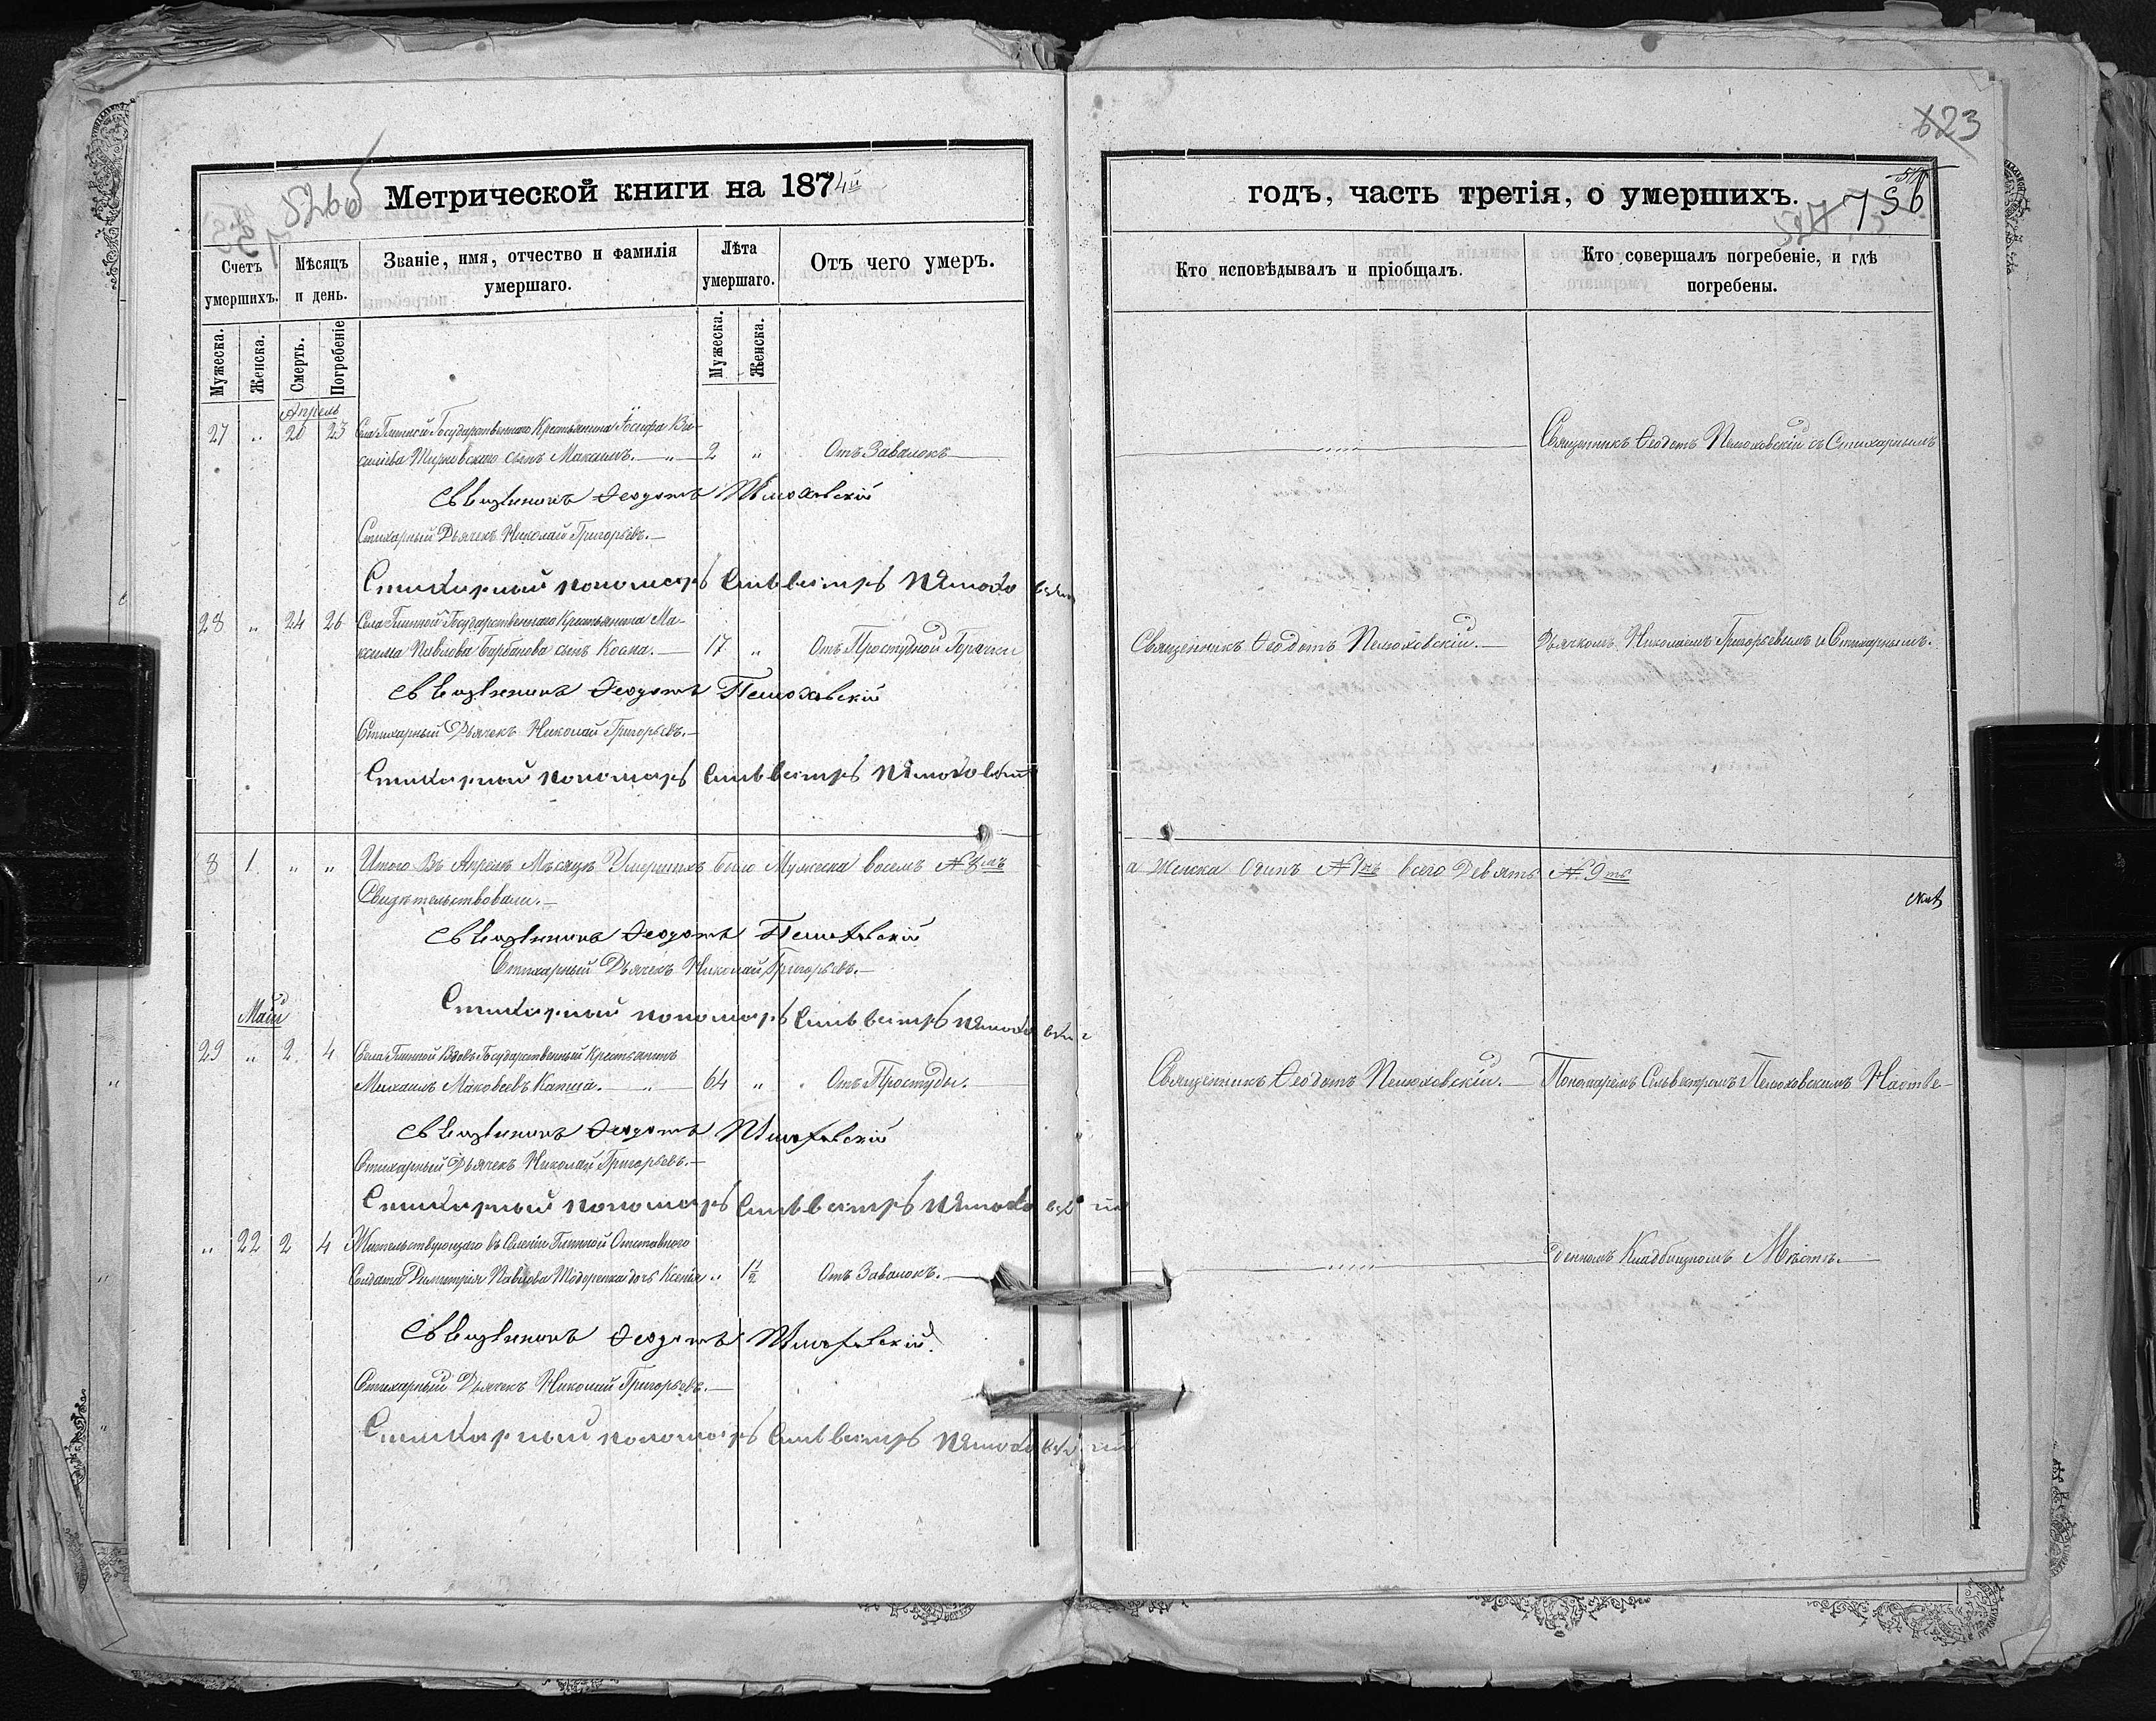 623
526об
Метрической книги на 1874й
годъ, часть третія, о умершихъ.
527
756
Счетъ умершихъ.
Мѣсяцъ и день.
Званіе, имя, отчество и фамилія умершаго.
Лѣта умершаго.
Отъ чего умеръ.
Кто исповѣдывалъ и пріобщалъ.
Кто совершалъ погребеніе, и гдѣ погребены.
Мужеска.
Женска.
Смерть.
Погребеніе
Мужеска.
Женска.
Апрель
27 „ 20 23 Села Глинной Государственнаго Крестьянина Іосифа Ва-
силіева сынъ Максимъ. — „ — 2 „ Отъ Завалокъ —
Священникъ Ѳеодотъ Пелюховскій съ Стихарнымъ
Священникъ Ѳеодотъ Пелюховскій
Стихарный Дьячекъ Николай Григорьевъ. —
Стихарный пономарь Сильвестръ Пелюховскій
28 „ 24 26 Села Глинной Государственнаго Крестьянина Ма-
ксима Павлова Барбанова сынъ Косма. — 17 „ Отъ Простудной Горячки
Священникъ Ѳеодотъ Пелюховскій. — Дьячкомъ Николаемъ Григорьевымъ и Стихарнымъ.
Священникъ Ѳеодотъ Пелюховскій
Стихарный Дьячекъ Николай Григорьевъ. —
Стихарный пономарь Сильвестръ Пелюховскій
8 1 „ „ Итого Въ Апрелѣ Мѣсяцѣ Умершихъ было Мужеска восемь № 8мь
а Женска Одинъ № 1нъ всего Девять № 9ть
Свидѣтельствовали. —
Священникъ Ѳеодотъ Пелюховскій
Стихарный Дьячекъ Николай Григорьевъ. —
Стихарный пономарь Сильвестръ Пелюховскій
Май
29 „ 2 4 Села Глинной Вдовъ Государственный Крестьянинъ
Михаилъ Маковеевъ Капша. — „ — 64 „ Отъ Простуды. —
Священникъ Ѳеодотъ Пелюховскій. — Пономаремъ Сельвестромъ Пелюховскимъ На отве-
Священникъ Ѳеодотъ Пелюховскій
Стихарный Дьячекъ Николай Григорьевъ. —
Стихарный пономарь Сильвестръ Пелюховскій
„ 22 2 4 Жительствующаго въ Селеніи Глинной Отставного
Солдата Димитрія Павлова Тодоренка дочь Ксенія „ 1½ Отъ Завалокъ. —
денномъ Кладбищномъ Мѣстѣ. —
Священникъ Ѳеодотъ Пелюховскій.
Стихарный Дьячекъ Николай Григорьевъ. —
Стихарный пономарь Сильвестръ Пелюховскій